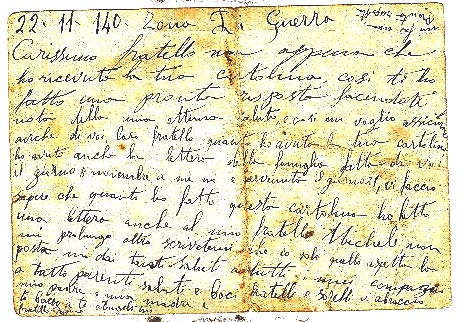 22-11-140 Zona Di Guerra
Carissimo fratello non appena che
ho ricevuto la tua cartolina cosi ti ho
fatto una pronta risposta facendoti
noto della mia ottima salute, e cosi mi voglio assicurare
anche di voi, Caro fratello quando ho avuto la tua cartolina
ho avuto anche la lettera della famiglia fatta di voi
il giorno 8 novembre a me mi è pervenuta il giorno, vi faccio
sapere che quando ho fatto questa cartolina ho fatto
una lettera anche al mio fratello Michele non
mi prolungo altro scrivetemi che io solo quello aspetto la
posta mi dai tanti saluti a tutti i miei compagni
a tutto parenti saluti e baci fratelli e sorelli vi abbraccio
mio padre e mia madre